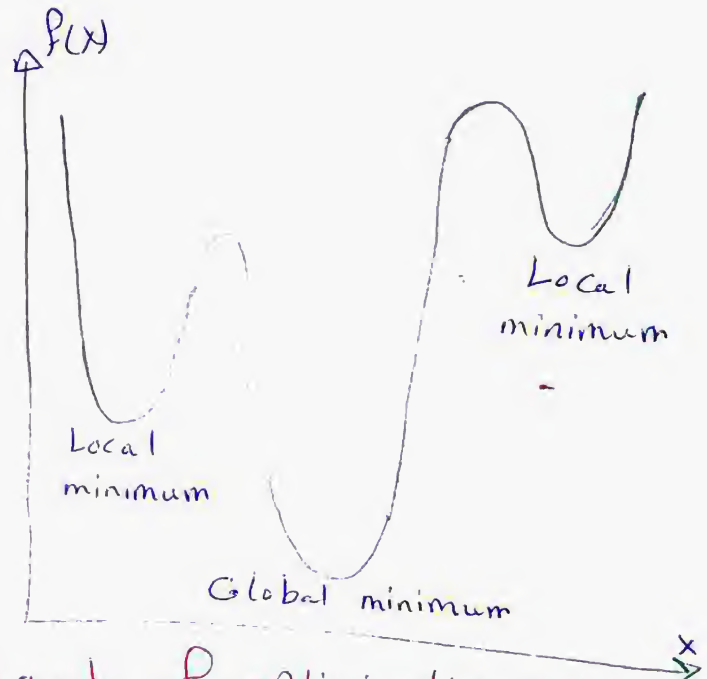 f(x)
Local
minimum
Local
minimum
Global minimum
x